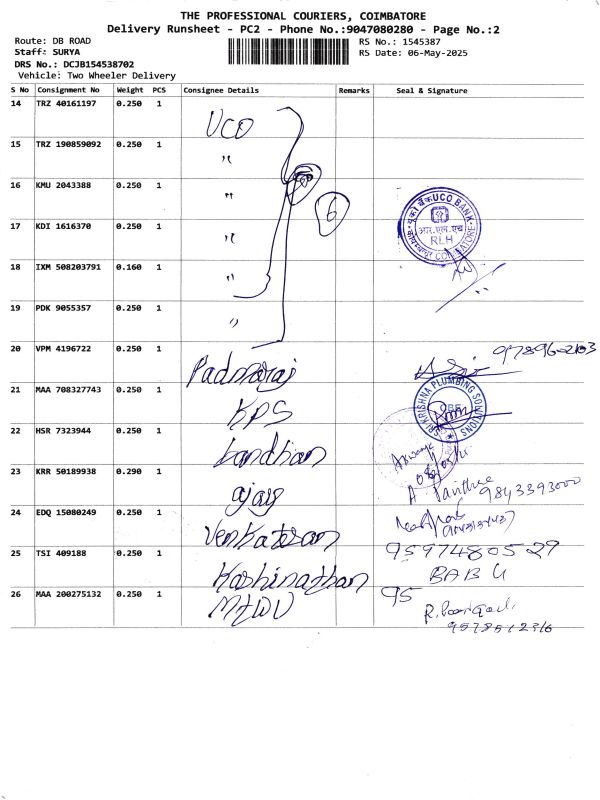 THE PROFESSIONAL COURIERS, COIMBATORE
Delivery Runsheet - PC2 - Phone No.:9047080280 - Page No.:2
Route: DB ROAD
RS No.: 1545387
Staff: SURYA
RS Date: 06-May-2025
DRS No.: DCJB154538702
Vehicle: Two Wheeler Delivery
S No Consignment No Weight PCS Consignee Details Remarks Seal & Signature
14 TRZ 40161197 0.250 1 UCO
15 TRZ 190859092 0.250 1 "
16 KMU 2043388 0.250 1 "
6
UCO BANK
RLH
COIMBATORE
17 KDI 1616370 0.250 1 "
18 IXM 508203791 0.160 1 "
19 PDK 9055357 0.250 1 "
20 VPM 4196722 0.250 1 Padmaraj
21 MAA 708327743 0.250 1 KPS
SRI KRISHNA PLUMBING SOLUTIONS
CBE
22 HSR 7323944 0.250 1
23 KRR 50189938 0.290 1 ajay
9843393000
24 EDQ 15080249 0.250 1 Venkatesan
25 TSI 409188 0.250 1 Kashinathan
9597480529
BABU
26 MAA 200275132 0.250 1
95